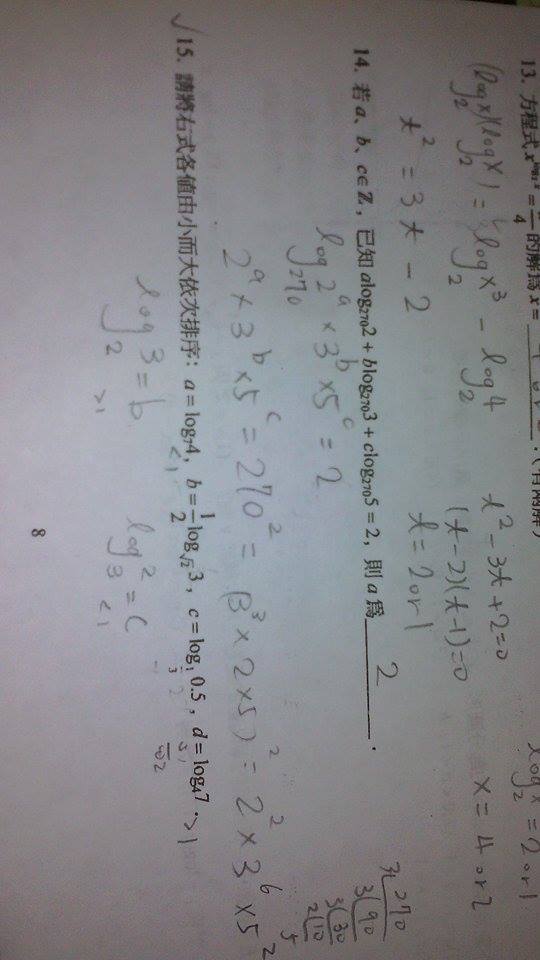 13. 方程式 = 4 的解為 x =
(log₂x)(log₂x) = log₂x³ − log₂4
t² − 3t + 2 = 0
t² = 3t − 2
(t−2)(t−1) = 0
t = 2 or 1
log₂x = 2 or 1
x = 4 or 2
14. 若 a、b、c∈Z，已知 alog₂₇₀2 + blog₂₇₀3 + clog₂₇₀5 = 2，則 a 為 2 .
log₂₇₀2ᵃ × 3ᵇ × 5ᶜ = 2
2ᵃ × 3ᵇ × 5ᶜ = 270² = (3³ × 2 × 5)² = 2² × 3⁶ × 5²
3 270
3 90
3 30
2 10
5
√ 15. 請將右式各值由小而大依次排序：a = log₇4，b = ½log√₂3，c = log⅓0.5，d = log₄7． >1
<1
log₂3 = b
>1
log₃2 = c
<1
8